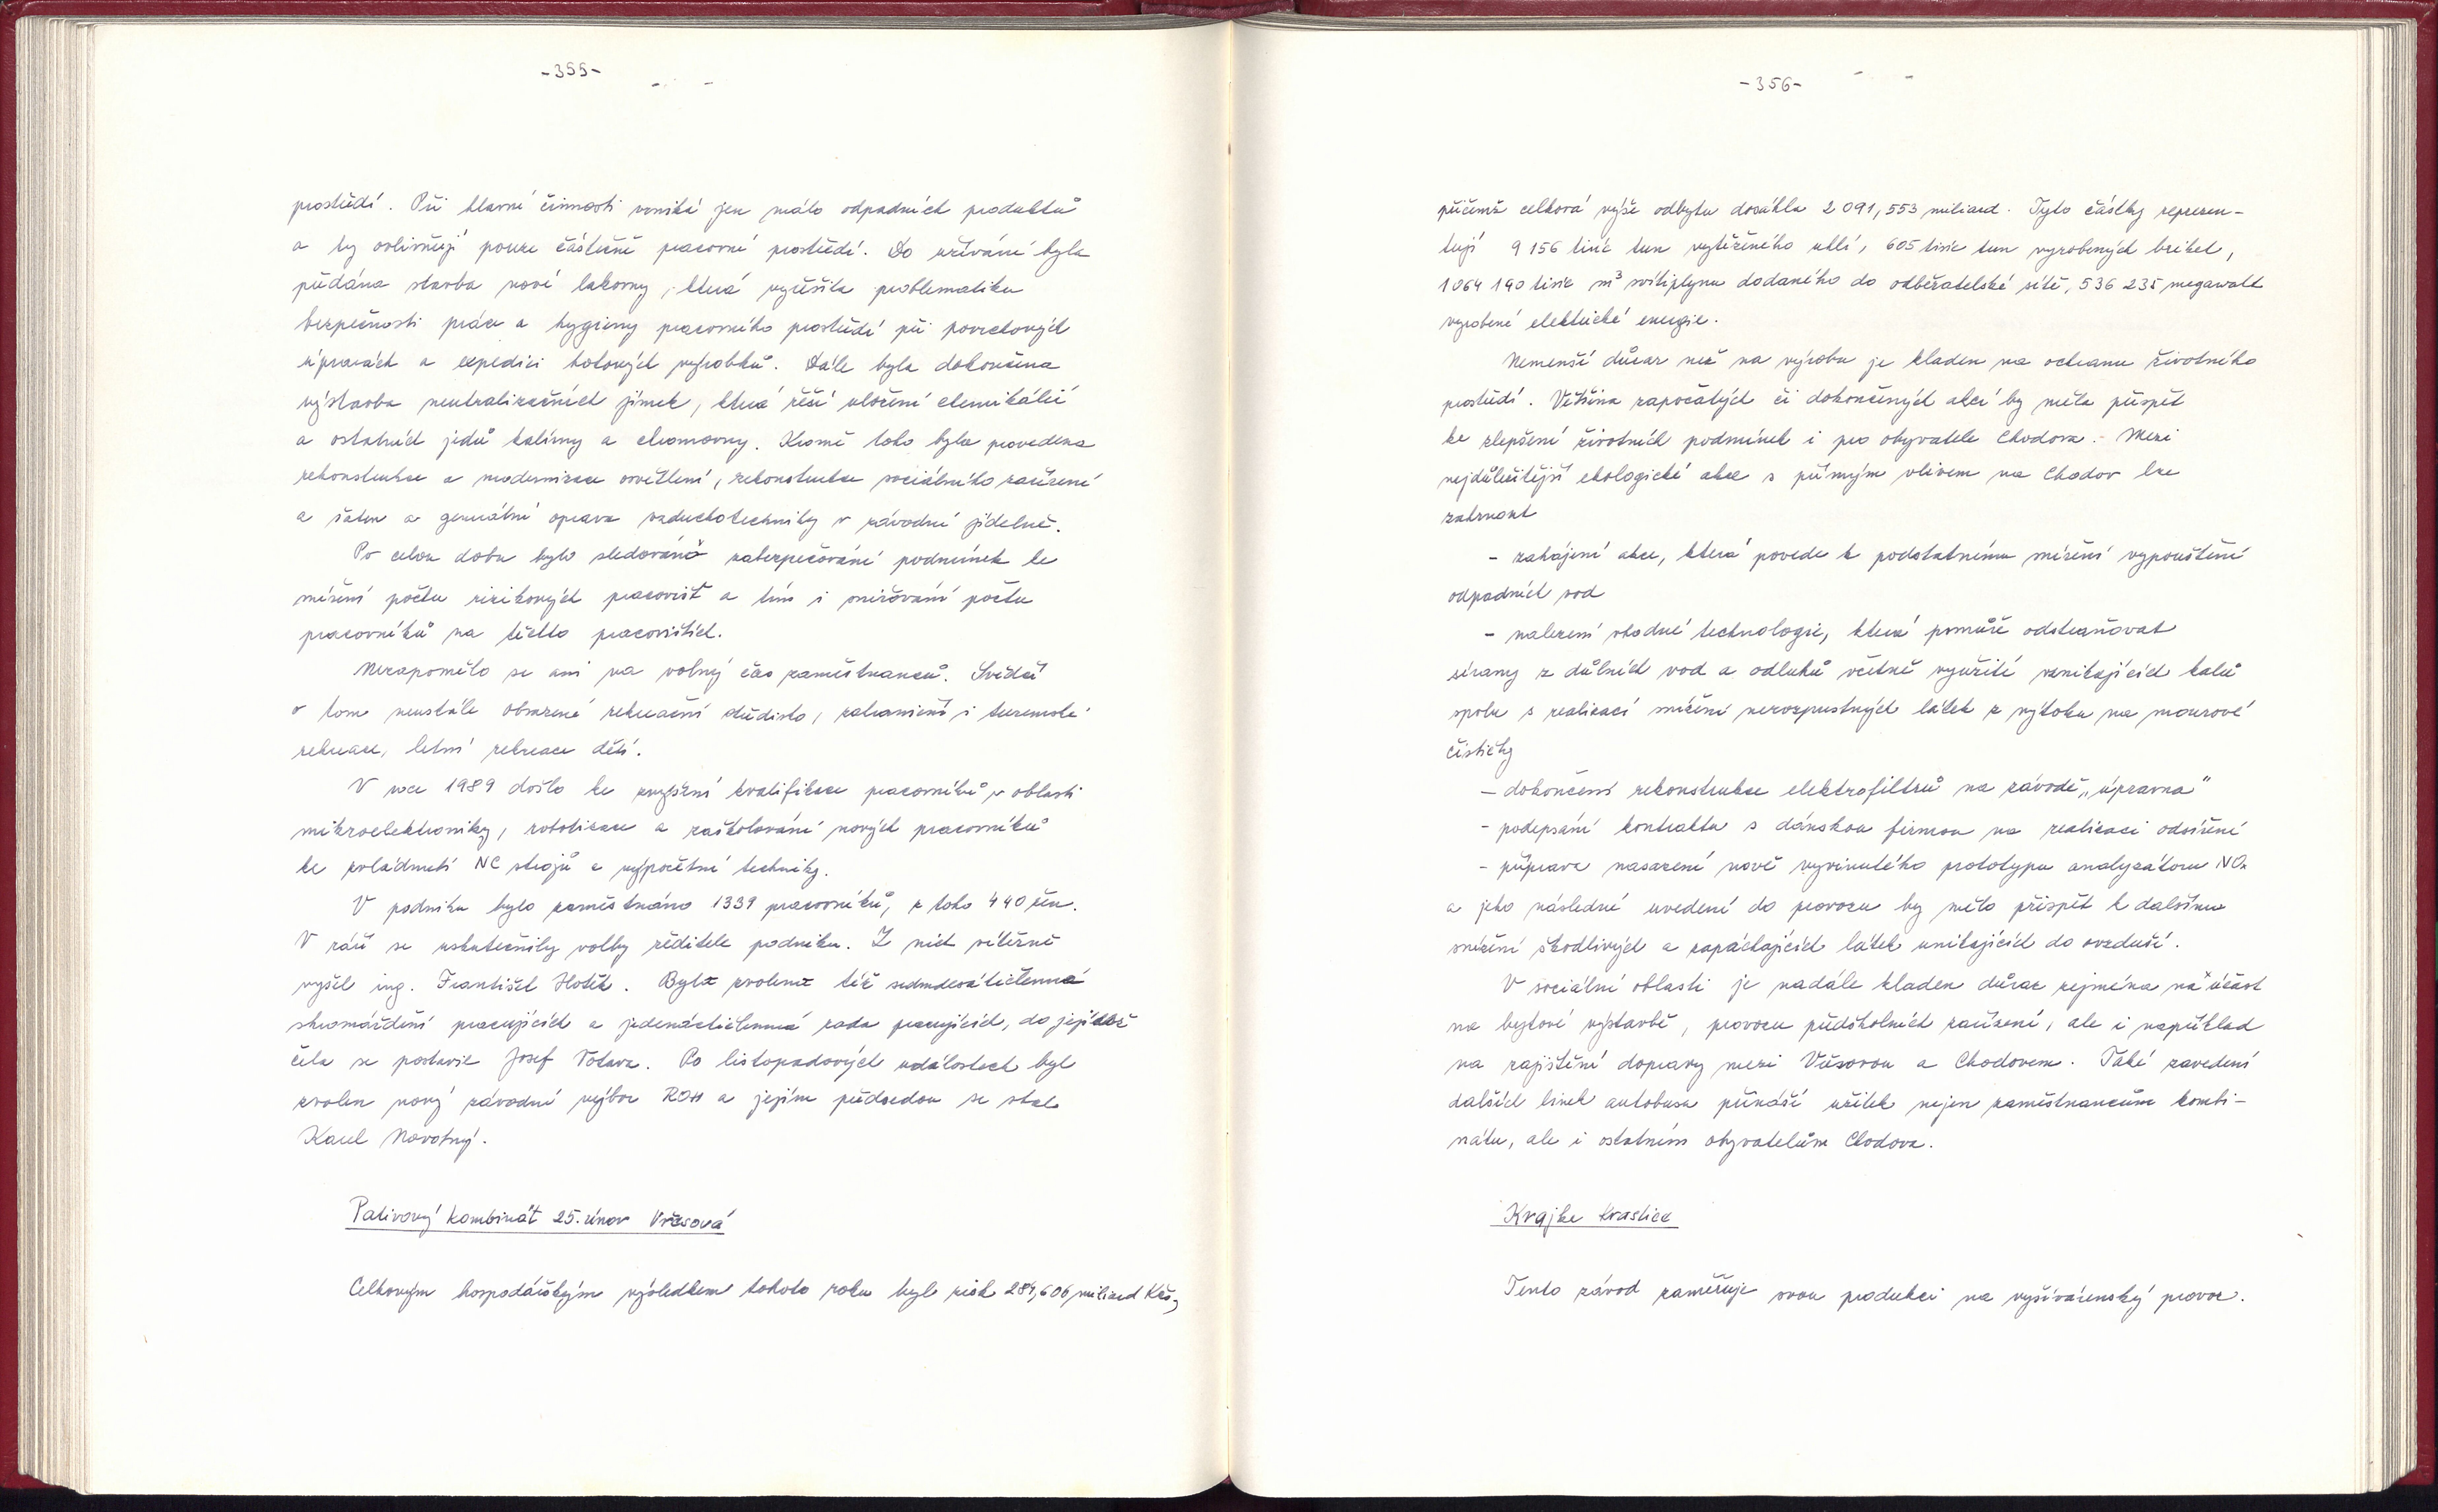 -355-
prostředí. Při hlavní činnosti vzniká jen málo odpadních produktů
a ty ovlivňují pouze částečně pracovní prostředí. Do užívání byla
předána stavba nové lakovny, která vyřešila problematiku
bezpečnosti práce a hygieny pracovního prostředí při povrchových
úpravách a expedici hotových výrobků. Dále byla dokončena
výstavba neutralizačních jímek, která řeší uložení chemikálií
a ostatních jedů kalírny a chromovny. Kromě toho byla provedena
rekonstrukce a modernizace osvětlení, rekonstrukce sociálního zařízení
a šaten a generální oprava vzduchotechniky v závodní jídelně.
Po celou dobu bylo sledováno zabezpečování podmínek ke
snížení počtu rizikových pracovišť a tím i snižování počtu
pracovníků na těchto pracovištích.
Nezapomělo se ani na volný čas zaměstnanců. Svědčí
o tom neustále obsazené rekreační středisko, zahraniční i tuzemské
rekreace, letní rekreace dětí.
V roce 1989 došlo ke zvýšení kvalifikace pracovníků v oblasti
mikroelektroniky, robotizace a zaškolování nových pracovníků
ke zvládnutí NC strojů a výpočetní techniky.
V podniku bylo zaměstnáno 1339 pracovníků, z toho 440 žen.
V září se uskutečnily volby ředitele podniku. Z nich vítězně
vyšel ing. František Hoték. Byla zvolena též sedmdesátičlenná
shromáždění pracujících a jedenáctičlenná rada pracujících, do jejíhož
čela se postavil Josef Votava. Po listopadových událostech byl
zvolen nový závodní výbor ROH a jejím předsedou se stal
Karel Novotný.
Palivový kombinát 25. únor Vřesová
Celkovým hospodářským výsledkem tohoto roku byl zisk 284,606 miliard Kčs,
-356-
přičemž celková výše odbytu dosáhla 2 091,553 miliard. Tyto částky reprezen-
tují 9 156 tisíc tun vytěženého uhlí, 605 tisíc tun vyrobených briket,
1 064 190 tisíc m³ svítiplynu dodaného do odběratelské sítě, 536 235 megawatt
vyrobené elektrické energie.
Nemenší důraz než na výrobu je kladen na ochranu životného
prostředí. Většina započatých či dokončených akcí by měla přispět
ke zlepšení životních podmínek i pro obyvatele Chodova. - Mezi
nejdůležitější ekologické akce s přímým vlivem na Chodov lze
zahrnout
- zahájení akce, která povede k podstatnému snížení vypouštění
odpadních vod
- nalezení vhodné technologie, která pomůže odstraňovat
sírany z důlních vod a odluhů včetně využití vznikajících kalů
spolu s realizací snížení nerozpustných látek z výtoku na mourové
čističky
- dokončení rekonstrukce elektrofiltrů na závodě „úpravna"
- podepsání kontraktu s dánskou firmou na realizaci odsíření
- příprava nasazení nově vyvinutého prototypu analyzátoru NOx
a jeho následné uvedení do provozu by mělo přispět k dalšímu
snížení škodlivých a zapáchajících látek unikajících do ovzduší.
V sociální oblasti je nadále kladen důraz zejména na účast
na bytové výstavbě, provozu předškolních zařízení, ale i například
na zajištění dopravy mezi Vřesovou a Chodovem. Také zavedení
dalších linek autobusu přináší užitek nejen zaměstnancům kombi-
nátu, ale i ostatním obyvatelům Chodova.
Krajka Kraslice
Tento závod zaměřuje svou produkci na vyšívárenský provoz.